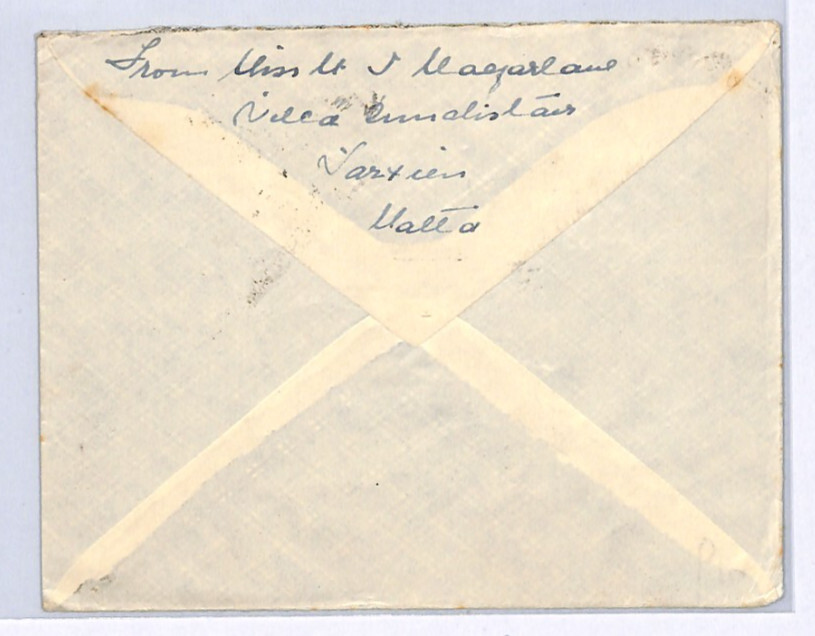 From Miss M J Macfarlane
Villa
Tarxien
Malta